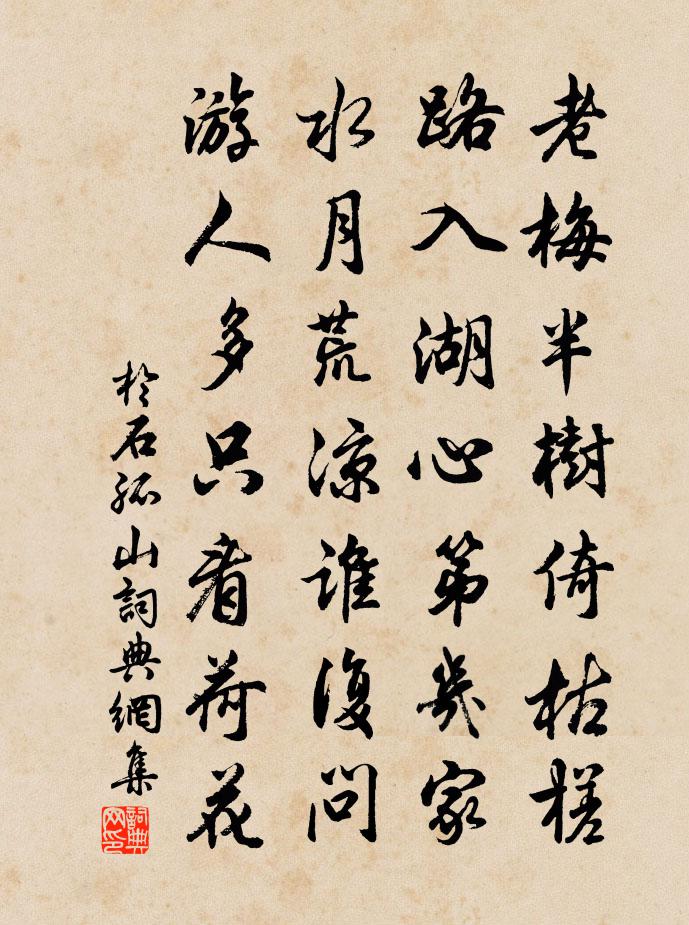 老梅半樹倚枯槎
路入湖心第幾家
水月荒涼誰復問
游人多只看荷花
於石孤山詞典網集
詞典网印